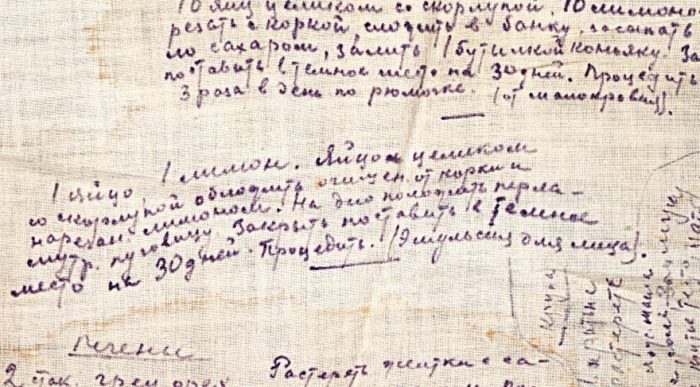 10 яиц целиком со скорлупой. 10 лимоно
резать с коркой, сложить в банку. засыпать
ло сахаром, залить 1 бутылкой коньяку. За
поставить в темное место на 30 дней. Процедить
3 раза в день по рюмочке. (от малокровия).
1 яйцо, 1 лимон. Яйцом целиком
со скорлупой обложить очищен. от корки и
нарезан. лимоном. На дно положить перла-
мутр. пуговицу. Закрыть поставить в темное
место на 30 дней. Процедить. (Эмульсия для лица).
печенье
2 стак. грец. орех Растереть желтки с са-